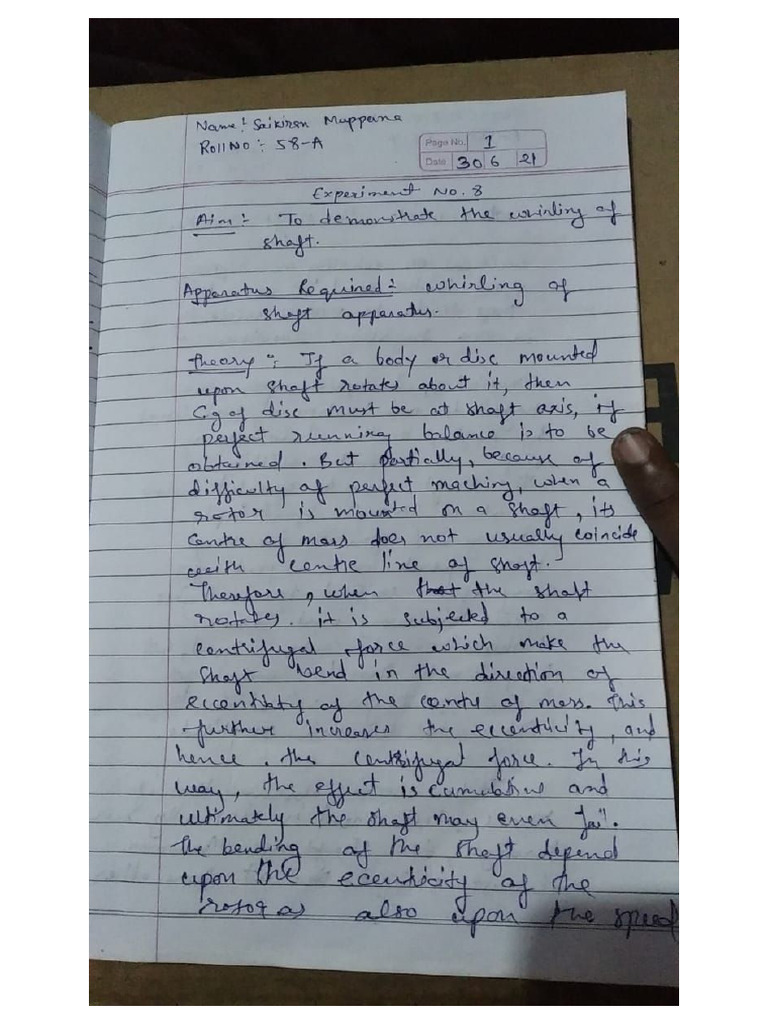 Name : Saikiran Muppana
Roll No :- 58-A
Page No. 1
Date 30 6 21
Experiment No. 8
Aim :- To demonstrate the whirling of
shaft.
Apparatus Required :- whirling of
shaft apparatus.
Theory :- If a body or disc mounted
upon shaft rotates about it, then
C.g of disc must be at shaft axis, if
perfect running balance is to be
obtained. But partially, because of
difficulty of perfect maching, when a
rotor is mounted on a shaft, its
centre of mass does not usually coincide
with centre line of shaft.
Therefore, when the shaft
rotates. it is subjected to a
centrifugal force which make the
shaft bend in the direction of
of the of mass. This
further increases the eccentricity, and
hence. the centrifugal force. In this
way, the effect is cumulative and
ultimately the shaft may even fail.
The bending of the shaft depend
upon the eccentricity of the
rotor as also upon the speed